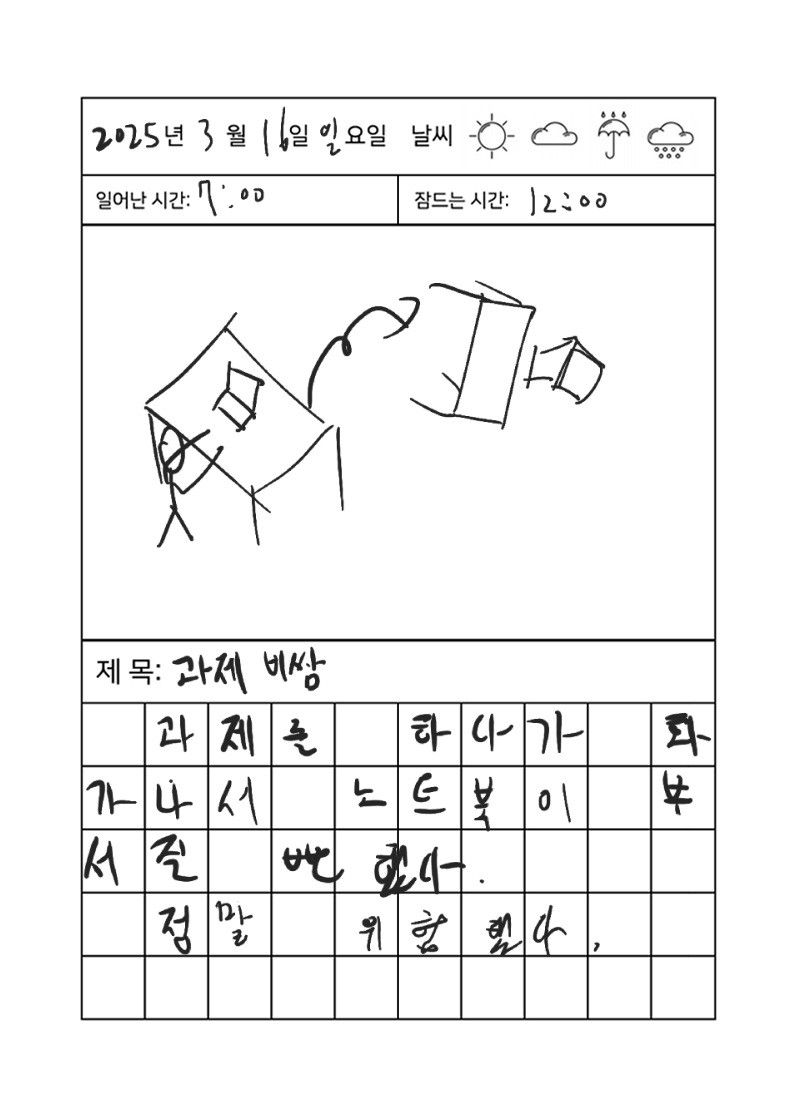 2025년 3월 16일 일요일 날씨
일어난 시간: 7:00 잠드는 시간: 12:00
제 목: 과제 비쌈
과제를 하다가 화
가나서 노트북이 부
서질 뻔 했다.
정말 위험했다.